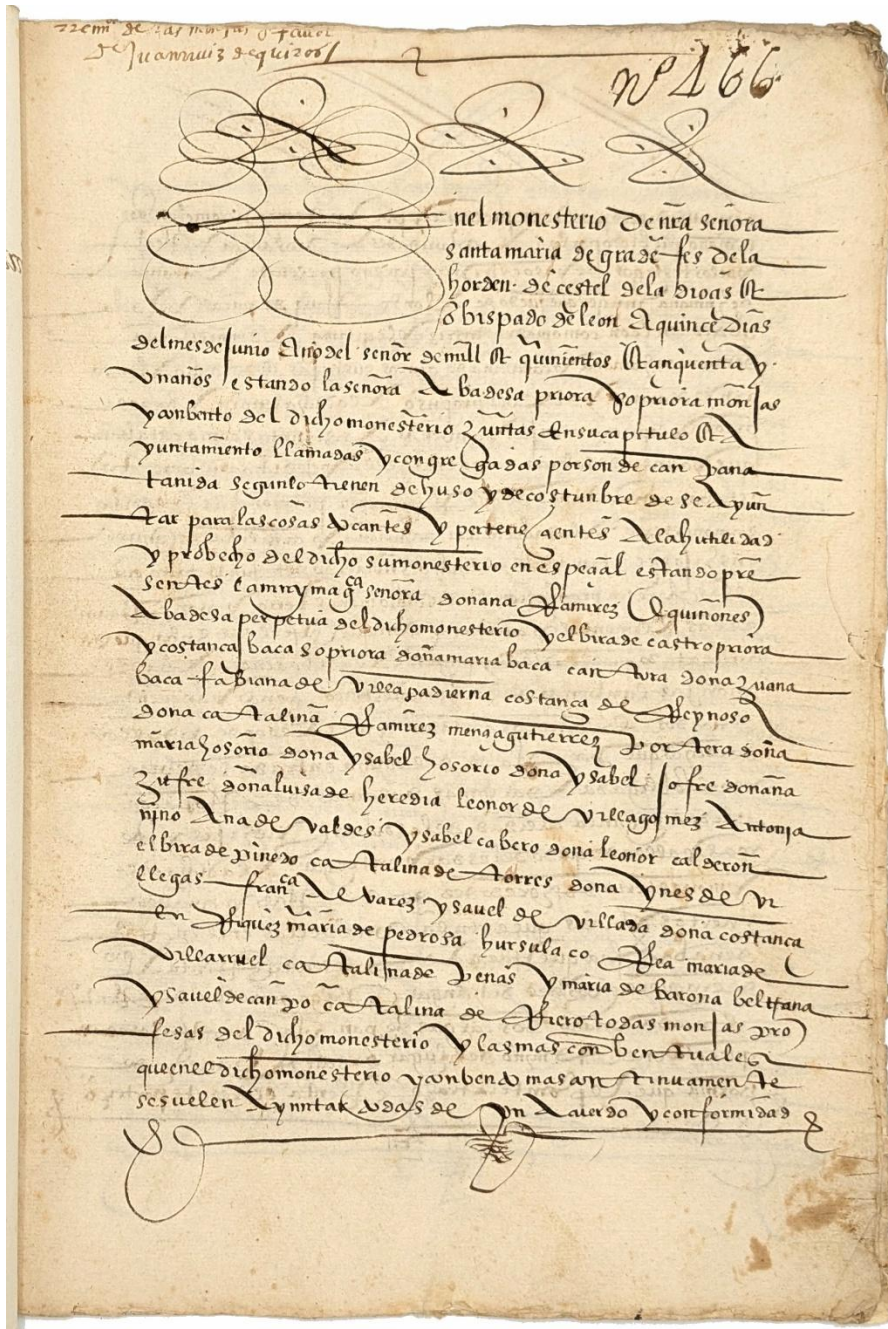 de las monjas a favor
de Juan rruiz de quiros
nº 466
nel monesterio de nra señora
santa maria de gradefes de la
horden de cestel de la dioçis &
obispado de leon a quinçe dias
del mes de junio año del señor de mill & quinientos & çinquenta y
un años estando la señora abadesa priora sopriora monjas
y conbento del dicho monesterio juntas en su capitulo &
yuntamiento llamadas y congregadas por son de canpana
tanida segun lo tienen de huso y de costunbre de se ayun
tar para las cosas tocantes y perteneçientes a la hutilidad
y probecho del dicho su monesterio en espeçial estando pre
sentes la muy magca señora dona ana Ramirez de quiñones
abadesa perpetua del dicho monesterio y elbira de castro priora
y costança baca sopriora doña maria baca cantora dona juana
baca fabiana de villapadierna costança de Reynoso
dona catalina Ramirez mençia gutierrez portera doña
maria hosorio dona ysabel hosorio dona ysabel jofre dona ana
jufre doña luisa de heredia leonor de villagomez antonia
nino ana de valdes ysabel cabero dona leonor calderon
elbira de pinedo catalina de torres dona ynes de vi
llegas franca alvarez ysavel de villada dona costança
enRiquez maria de pedrosa hursula coRea maria de
villarruel catalina de penas y maria de barona beltrana
ysavel de canpo catalina de Riero todas monjas pro
fesas del dicho monesterio y las mas conbentuales
que en el dicho monesterio y conbento mas continuamente
se suelen ayuntar todas de un acuerdo y conformidad